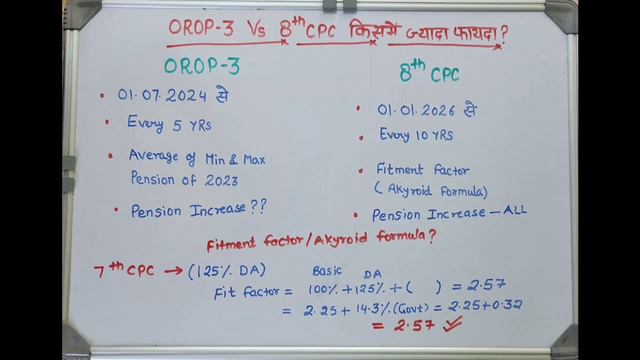 OROP-3 Vs 8th CPC किसमें ज्यादा फायदा?
OROP-3
• 01.07.2024 से
• Every 5 YRs
• Average of Min & Max
Pension of 2023
• Pension Increase??
8th CPC
• 01.01.2026 से
• Every 10 YRs
• Fitment Factor
(Akyroid Formula)
• Pension Increase – ALL
Fitment factor/Akyroid formula?
7th CPC → (125% DA)
Basic DA
Fit factor = 100% + 125% + ( ) = 2.57
= 2.25 + 14.3% (Govt) = 2.25 + 0.32
= 2.57 ✓